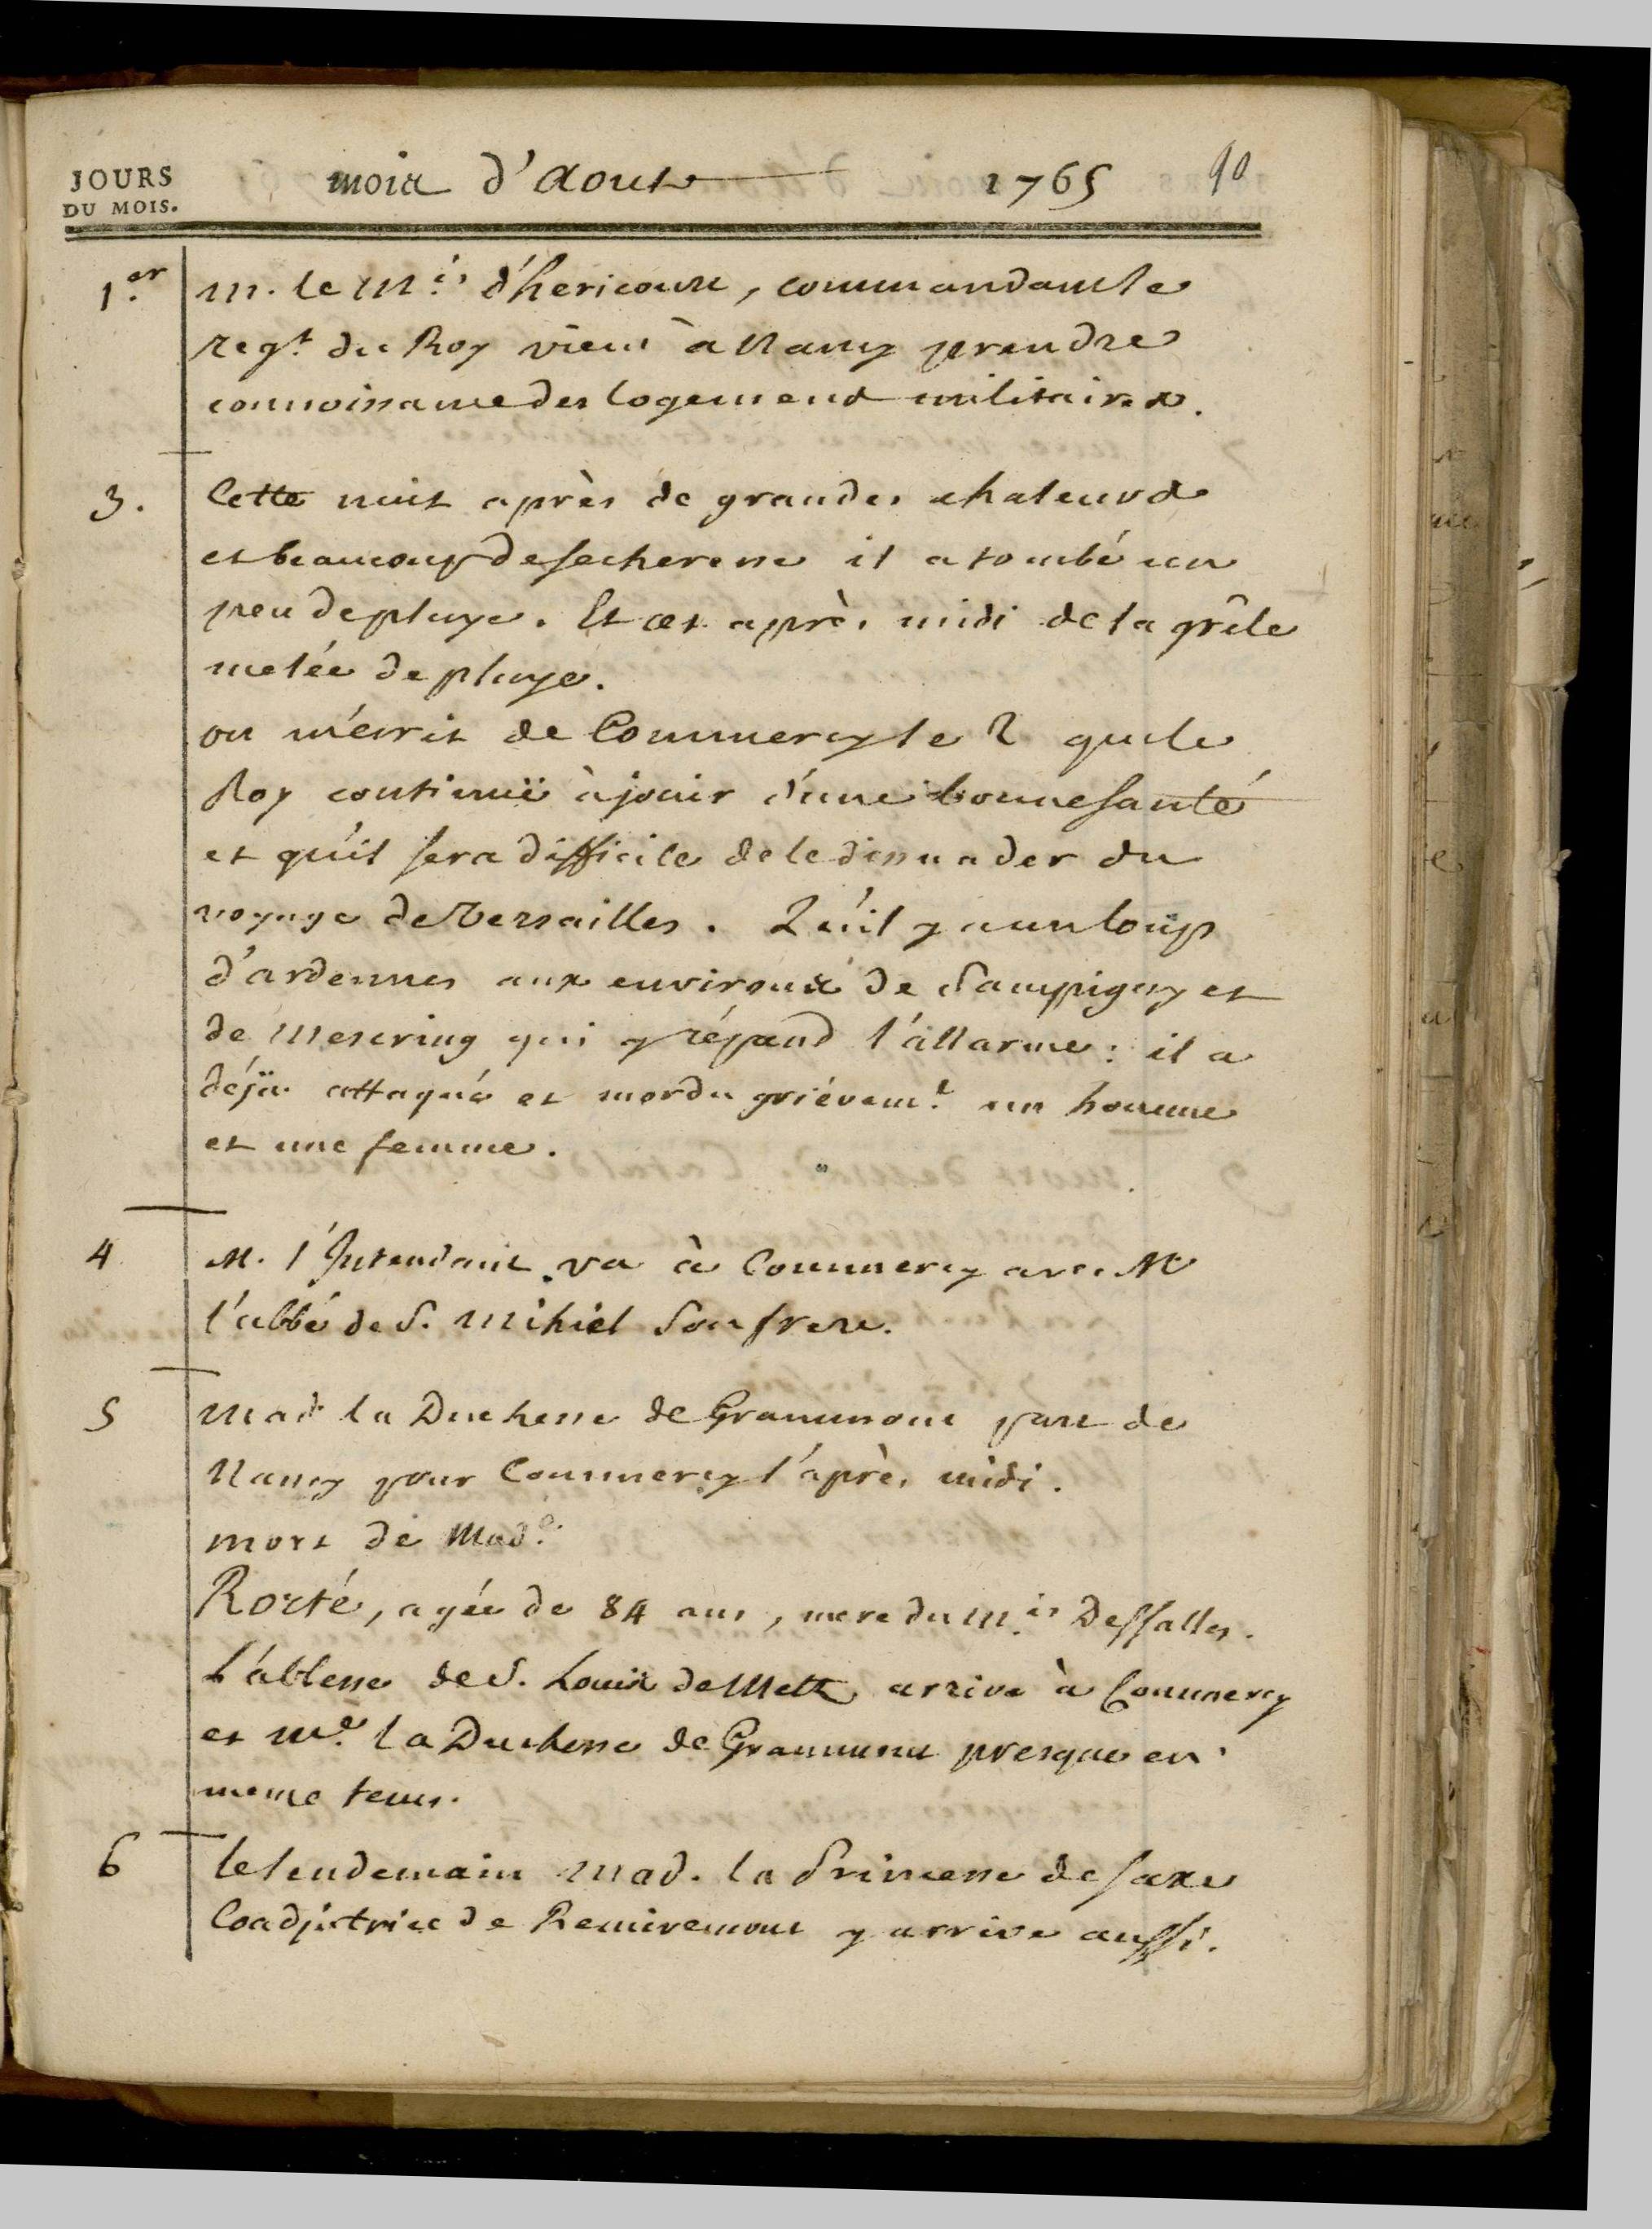 JOURS DU MOIS. mois d'Aoust 1765 90
1.er M. le M.is d'hericourt, commandant le
reg.t du Roy vient à Nancy prendre
connoissance des logemens militaires.
3. Cette nuit après de grandes chaleurs
et beaucoup de secheresse il a tombé un
peu de pluye. Et cet après midi de la grêle
melée de pluye.
on m'écrit de Commercy le 2 que le
Roy continuë à jouir d'une bonne santé
et qu'il sera difficile de le dissuader du
voyage de Versailles. Qu'il y a un loup
d'ardennes aux environs de Sampigny et
de Mesering qui y répand l'allarme: il a
déja attaqué et mordu griévem.t un homme
et une femme.
4 M. l'Intendant va à Commercy avec M
l'abbé de S. Mihiel son frere.
5 Mad.e la Duchesse de Grammont part de
Nancy pour Commercy l'après midi.
mort de Mad.e
Rorté, agée de 84 ans, mere du M.is Desalles.
L'abbesse de S. Louis de Mettz arrive à Commercy
et M.e la Duchesse de Grammont presque en
meme tems.
6 le lendemain Mad. la Princesse de Saxe
Coadjutrice de Remiremont y arrive aussi.